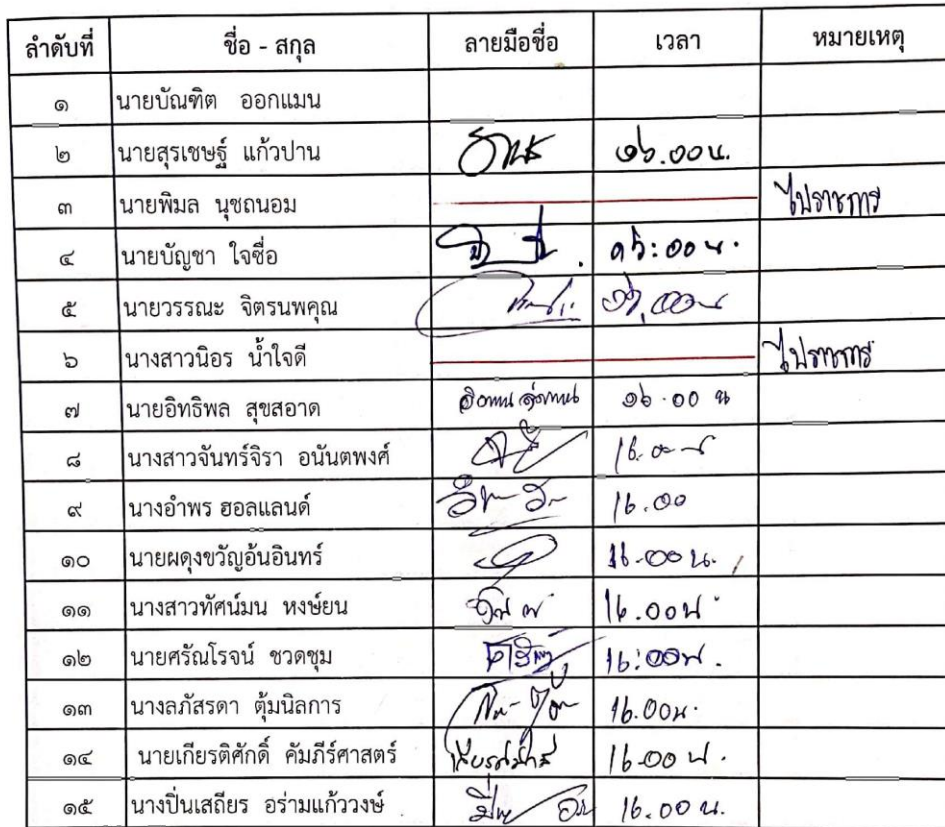 ลำดับที่ ชื่อ - สกุล ลายมือชื่อ เวลา หมายเหตุ
๑ นายบัณฑิต ออกแมน
๒ นายสุรเชษฐ์ แก้วปาน ๑๖.๐๐น.
๓ นายพิมล นุชถนอม ไปราชการ
๔ นายบัญชา ใจซื่อ ๑๖:๐๐น.
๕ นายวรรณะ จิตรนพคุณ
๖ นางสาวนิอร น้ำใจดี ไปราชการ
๗ นายอิทธิพล สุขสอาด ๑๖.๐๐ น
๘ นางสาวจันทร์จิรา อนันตพงศ์
๙ นางอำพร ฮอลแลนด์ 16.00
๑๐ นายผดุงขวัญอ้นอินทร์ 16.00น.
๑๑ นางสาวทัศน์มน หงษ์ยน 16.00น.
๑๒ นายศรัณโรจน์ ชวดชุม 16:00น.
๑๓ นางลภัสรดา ตุ้มนิลการ 16.00น.
๑๔ นายเกียรติศักดิ์ คัมภีร์ศาสตร์ 16.00น.
๑๕ นางปิ่นเสถียร อร่ามแก้ววงษ์ 16.00น.